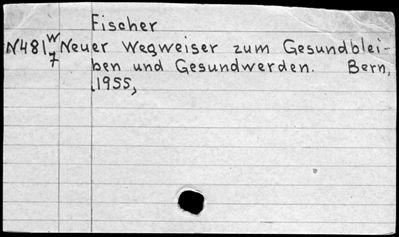 Fischer
N481 W/7 Neuer Wegweiser zum Gesundblei-
ben und Gesundwerden. Bern,
1955,